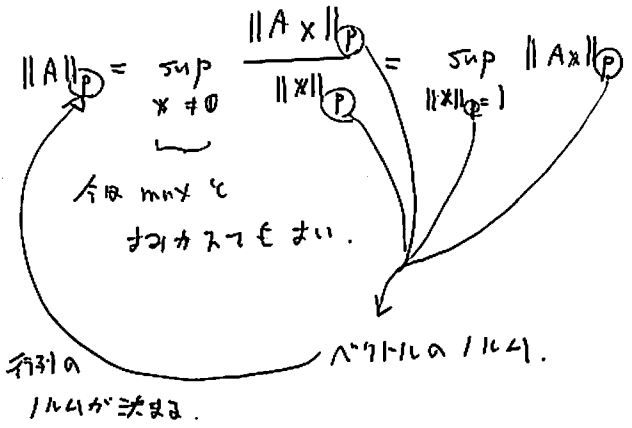 ||A||p = sup x≠0 ||Ax||p / ||x||p = sup ||x||p=1 ||Ax||p
今回 max で
おきかえてもよい.
ベクトルのノルム.
行列の
ノルムが決まる.